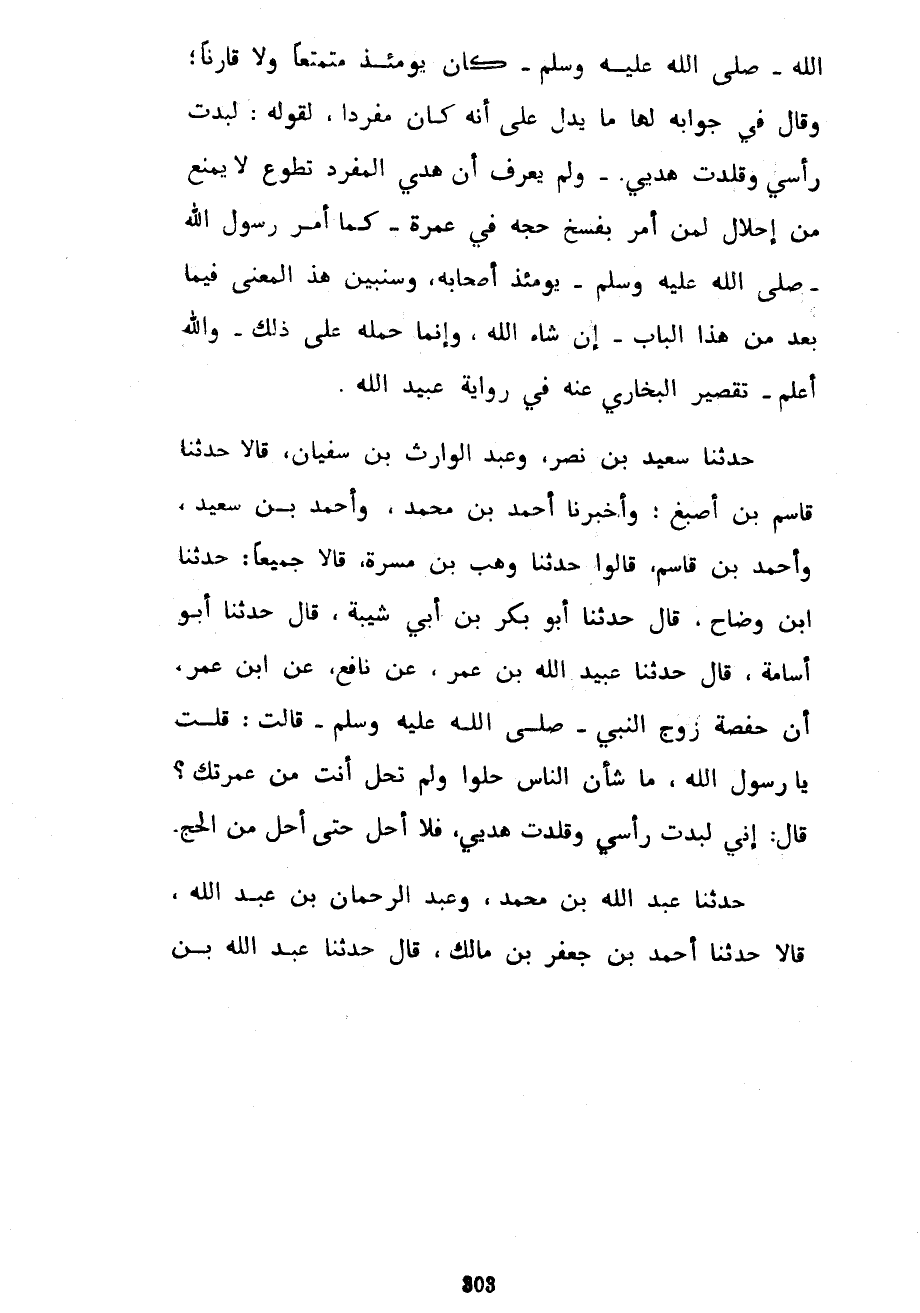 الله ـ صلى الله عليه وسلم ـ كان يومئذ متمتعاً ولا قارناً؛
وقال في جوابه لها ما يدل على أنه كان مفردا ، لقوله : لبدت
رأسي وقلدت هديي. ـ ولم يعرف أن هدي المفرد تطوع لا يمنع
من إحلال لمن أمر بفسخ حجه في عمرة ـ كما أمر رسول الله
ـ صلى الله عليه وسلم ـ يومئذ أصحابه، وسنبين هذ المعنى فيما
بعد من هذا الباب ـ إن شاء الله ، وإنما حمله على ذلك ـ والله
أعلم ـ تقصير البخاري عنه في رواية عبيد الله .
حدثنا سعيد بن نصر، وعبد الوارث بن سفيان، قالا حدثنا
قاسم بن أصبغ : وأخبرنا أحمد بن محمد ، وأحمد بن سعيد ،
وأحمد بن قاسم، قالوا حدثنا وهب بن مسرة، قالا جميعاً: حدثنا
ابن وضاح ، قال حدثنا أبو بكر بن أبي شيبة ، قال حدثنا أبو
أسامة ، قال حدثنا عبيد الله بن عمر ، عن نافع، عن ابن عمر،
أن حفصة زوج النبي ـ صلى الله عليه وسلم ـ قالت : قلت
يا رسول الله ، ما شأن الناس حلوا ولم تحل أنت من عمرتك ؟
قال: إني لبدت رأسي وقلدت هديي، فلا أحل حتى أحل من الحج.
حدثنا عبد الله بن محمد ، وعبد الرحمان بن عبد الله ،
قالا حدثنا أحمد بن جعفر بن مالك ، قال حدثنا عبد الله بن
303